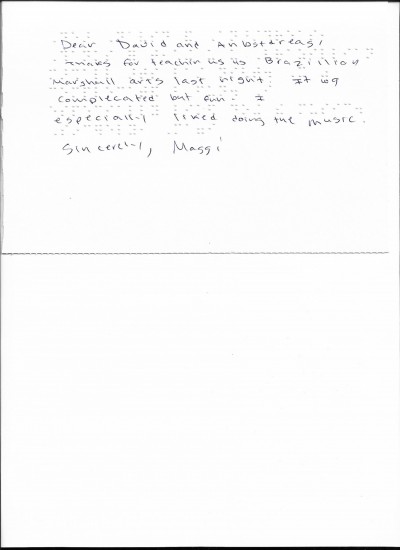 Dear David and Anbstdreas,
Thinks for teachin us us Brazillion
Marshall arts last night. It wg
complecated but fun. I
especiall-l liked doing the music.
Sincerel-l, Maggi